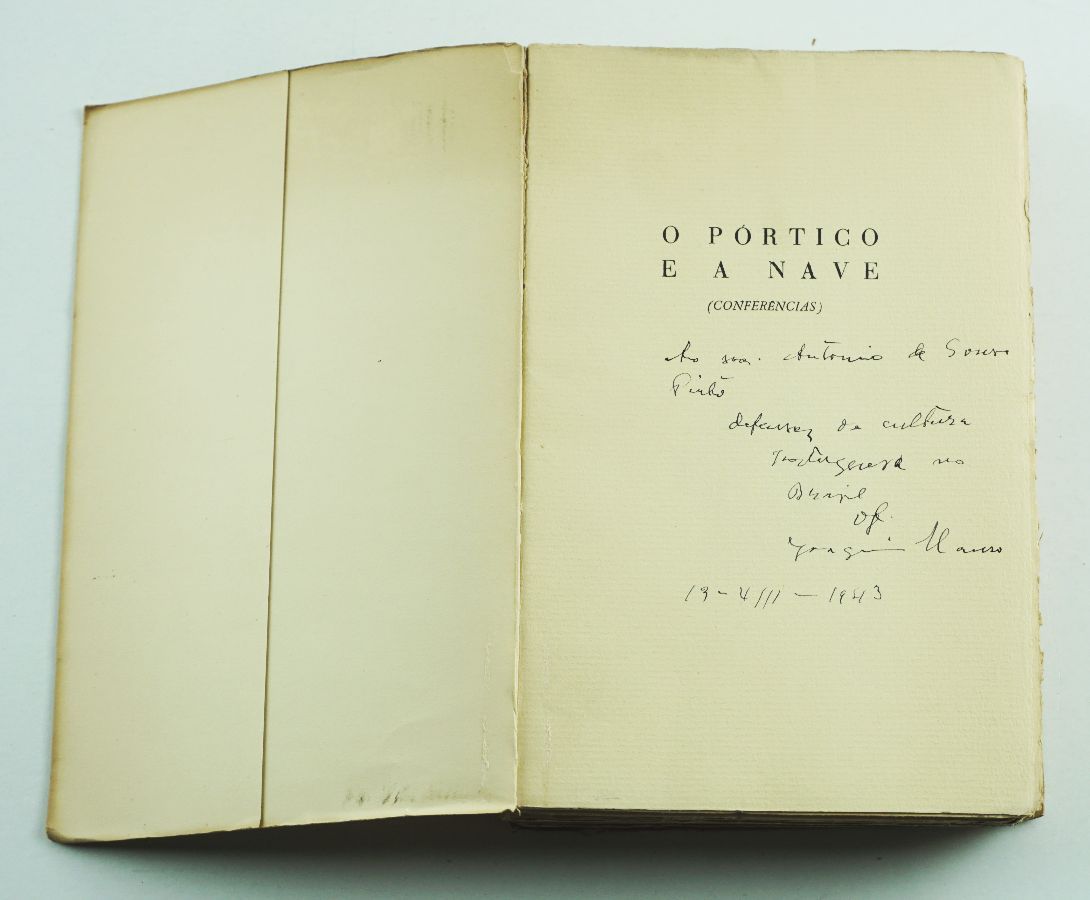 O PÓRTICO
E A NAVE
(CONFERÊNCIAS)
Ao snr. Antonio de Sousa
Pinto
defensor da cultura
portuguesa no
Brasil
of.
Joaquim Manso
13-VIII-1943